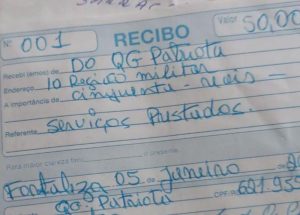 Nº 001 RECIBO Valor 50,00
Recebi (emos) de DO QG Patriota
Endereço 10 Região militar
A importância de cinquenta - reais -
Referente Serviços Prestados.
Para maior clareza firm o presente
Fortaleza 05 de Janeiro
QG. Patriota CPF/R